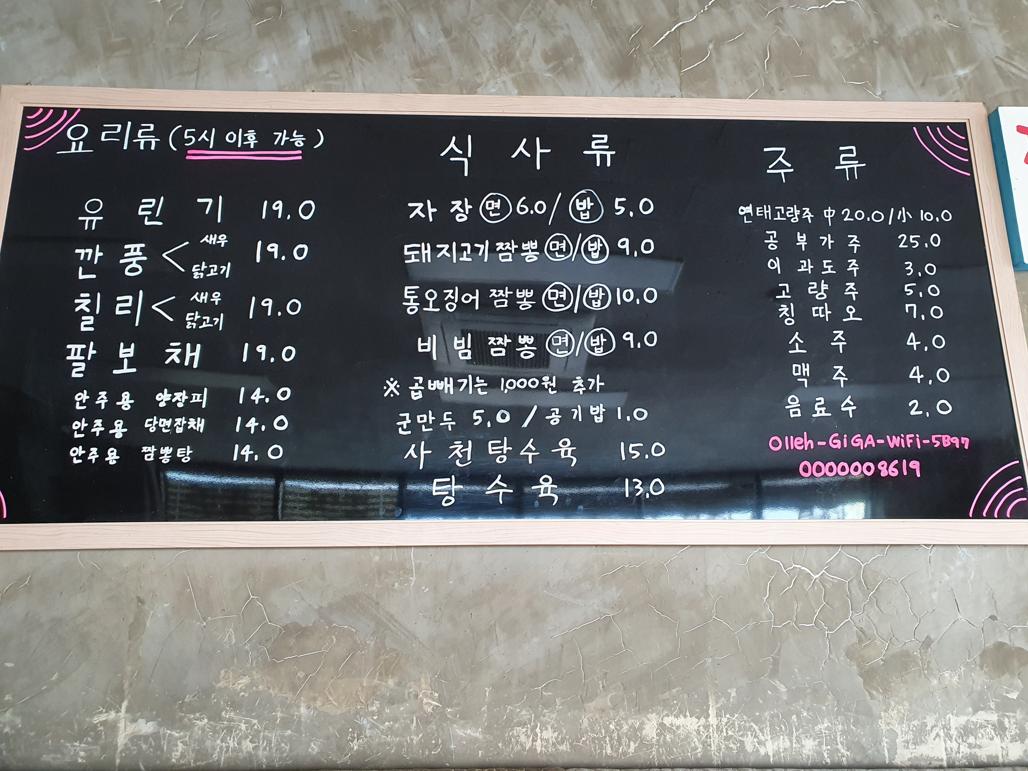 요리류 (5시 이후 가능)
유린기 19.0
깐풍 < 새우 닭고기 19.0
칠리 < 새우 닭고기 19.0
팔보채 19.0
안주용 양장피 14.0
안주용 당면잡채 14.0
안주용 짬뽕탕 14.0
식사류
자장 면 6.0 / 밥 5.0
돼지고기 짬뽕 면/밥 9.0
통오징어 짬뽕 면/밥 10.0
비빔 짬뽕 면/밥 9.0
※ 곱빼기는 1,000원 추가
군만두 5.0 / 공기밥 1.0
사천탕수육 15.0
탕수육 13.0
주류
연태고량주 中 20.0 / 小 10.0
공부가주 25.0
이과도주 3.0
고량주 5.0
칭따오 7.0
소주 4.0
맥주 4.0
음료수 2.0
Olleh-GiGA-WiFi-5B97
0000008619